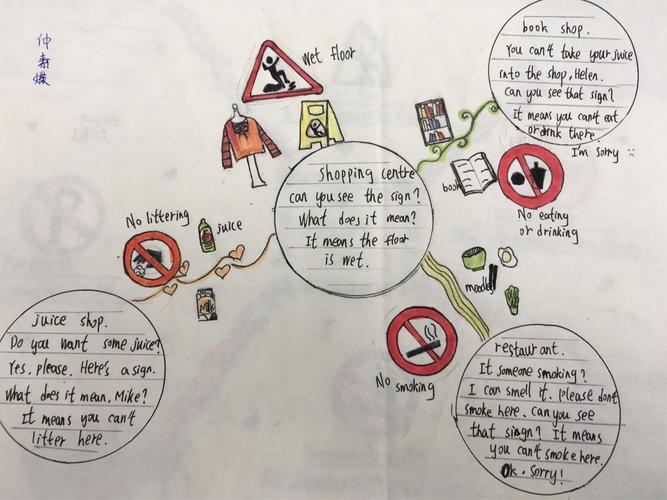 仲素蝶
wet floor
shopping centre
can you see the sign?
What does it mean?
It means the floor
is wet.
book shop.
You can't take your juice
into the shop, Helen.
can you see that sign?
It means you can't eat
or drink there.
I'm sorry
book
No eating
or drinking
No littering
juice
Milk
juice shop.
Do you want some juice?
Yes, please. Here's a sign.
What does it mean, Mike?
It means you can't
litter here.
noodles
No smoking
restaurant.
It someone smoking?
I can smell it. please don't
smoke here. can you see
that sign? It means
you can't smoke here.
Ok. Sorry!